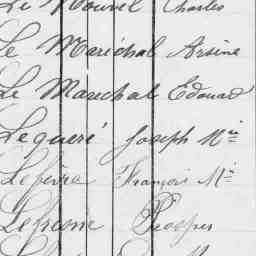 Le Nouvel Charles
Le Maréchal Arsène
Le Marechale Edouard
Lequéré Joseph Mie
Lefèvre François Mie
Lefresne Prosper